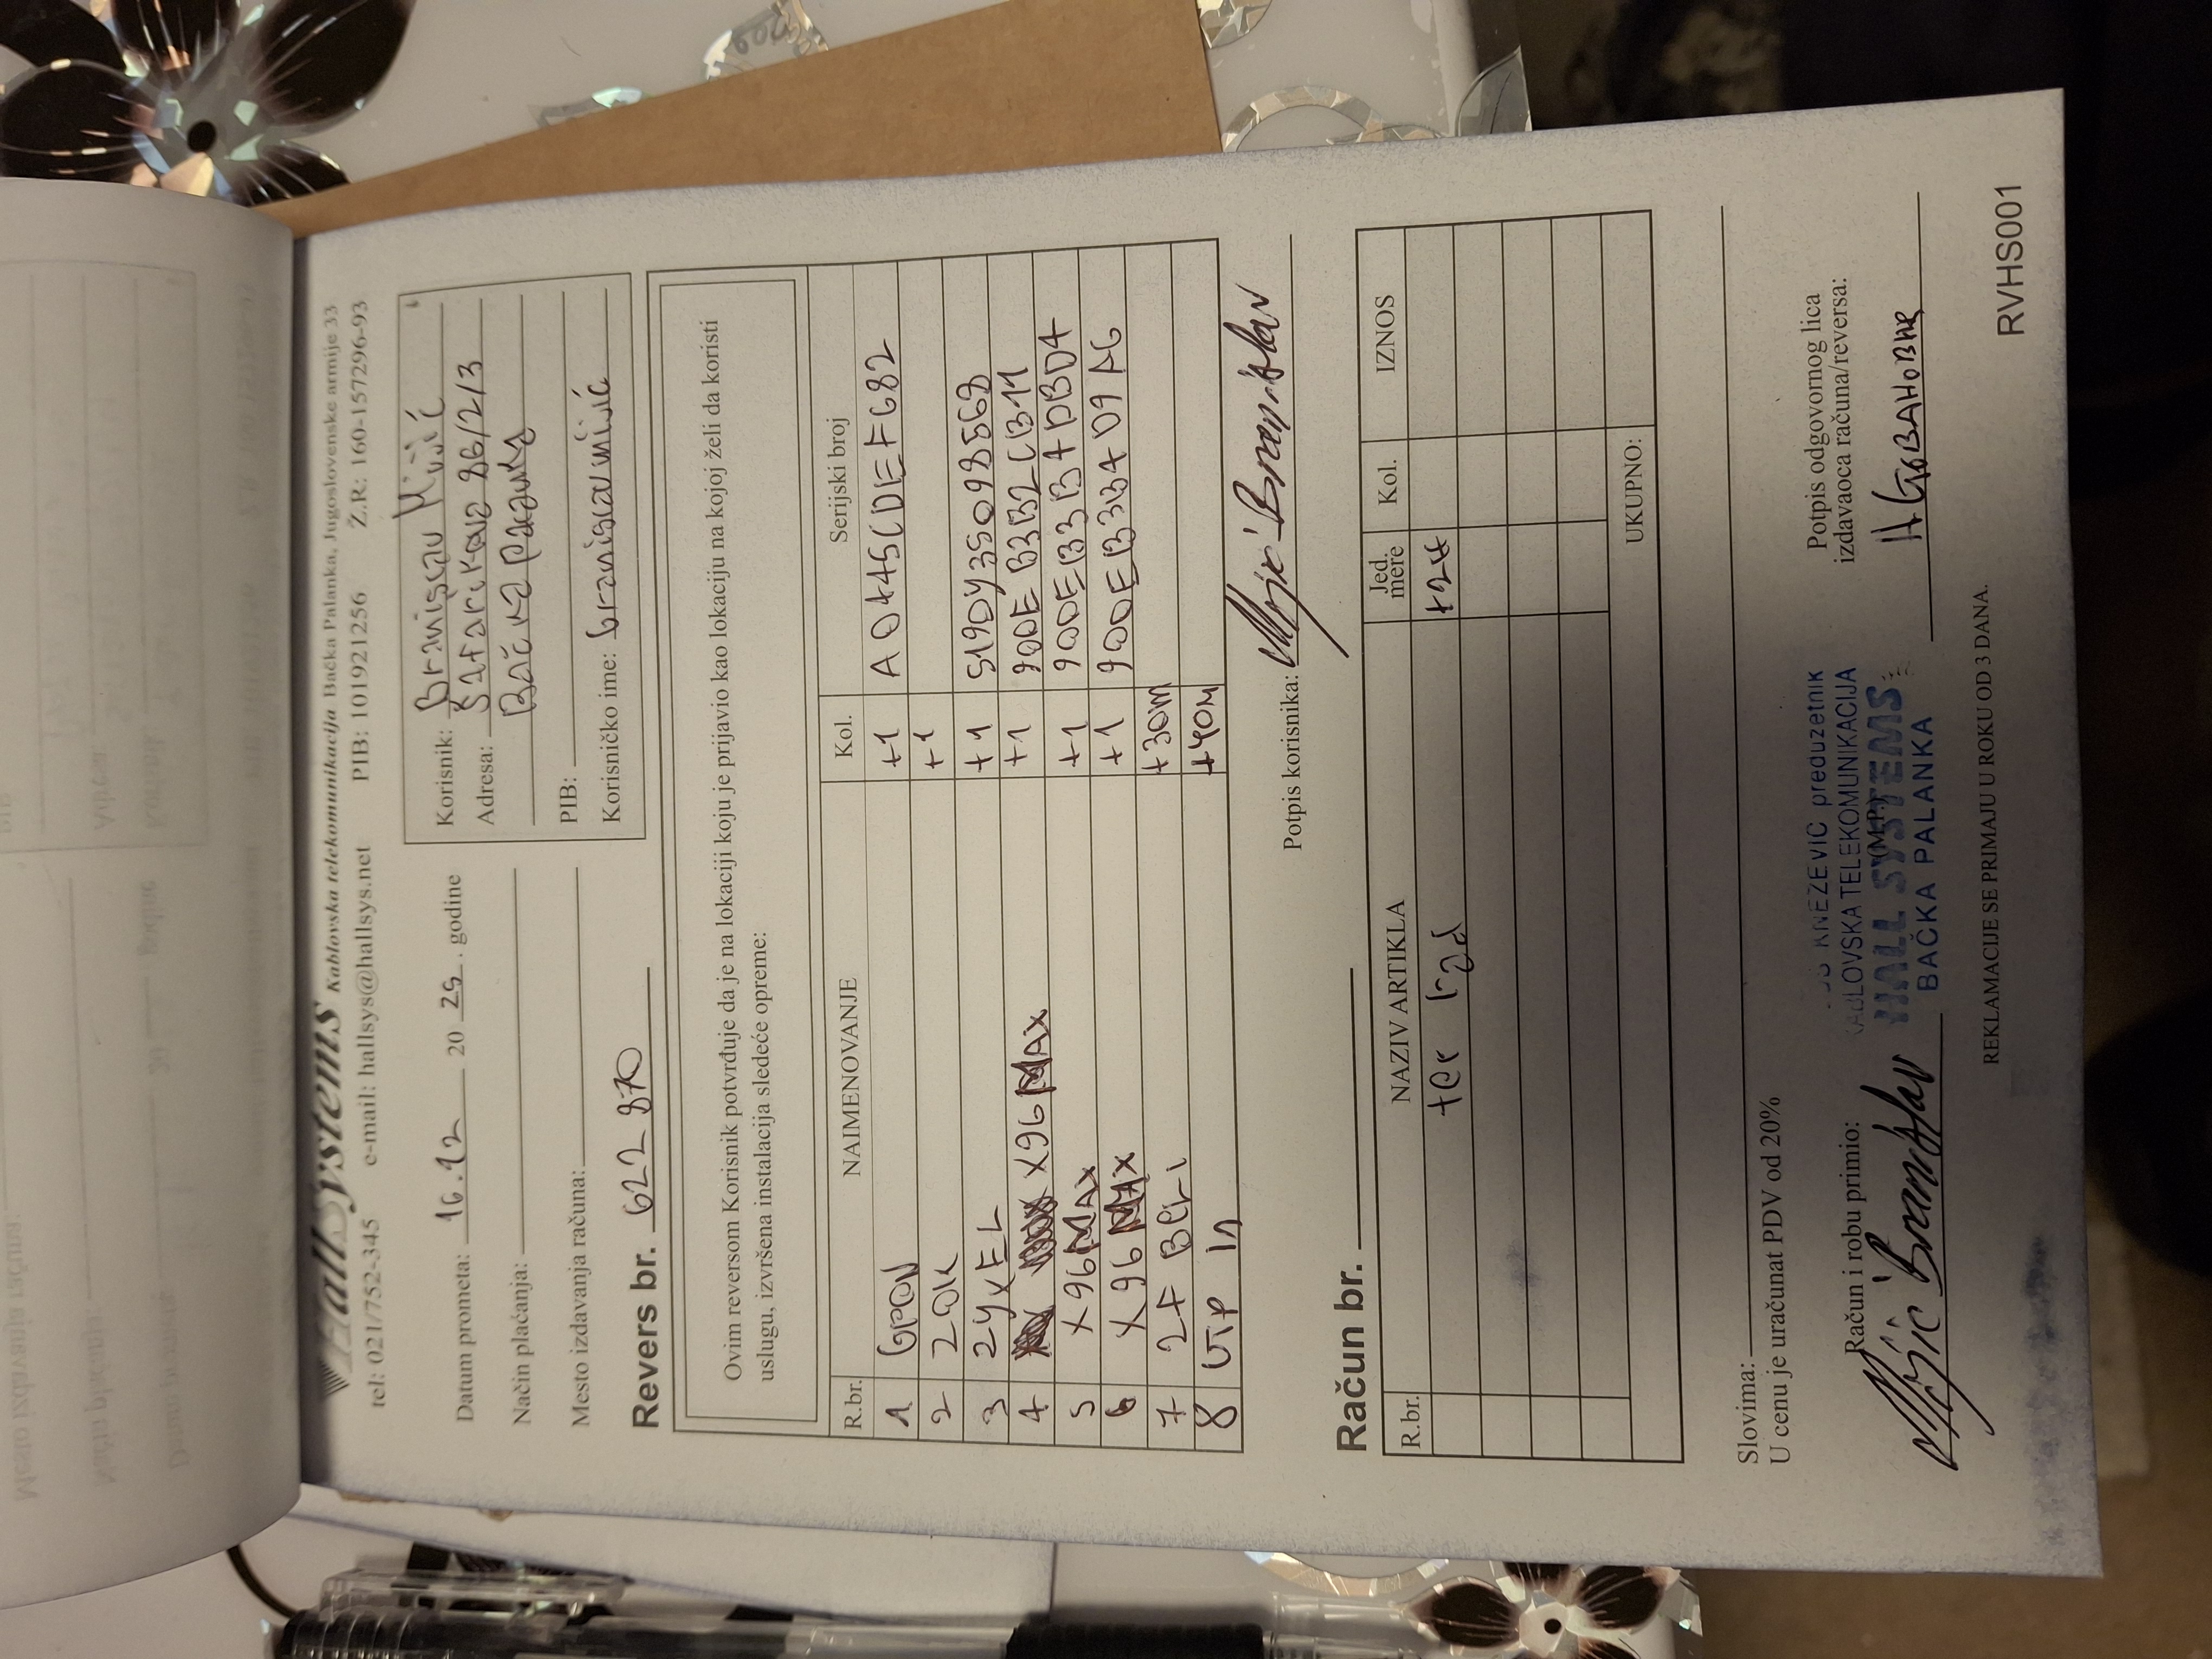 HallSystems Kablovska telekomunikacija Bačka Palanka, Jugoslovenske armije 33
tel: 021/752-345 e-mail: hallsys@hallsys.net PIB: 101921256 Ž.R: 160-157296-93
Datum prometa: 16.12 20 25. godine
Način plaćanja:
Mesto izdavanja računa:
Korisnik: Branislav Mijić
Adresa: Šafarikova 86/2/3
Bačka Palanka
PIB:
Korisničko ime: branislavmijić
Revers br. 622 870
Ovim reversom Korisnik potvrđuje da je na lokaciji koju je prijavio kao lokaciju na kojoj želi da koristi
uslugu, izvršena instalacija sledeće opreme:
R.br. NAIMENOVANJE Kol. Serijski broj
1 GPON +1 A0445CDEF682
2 ZOK +1
3 ZYXEL +1 S190Y35098568
4 X96MAX +1 900EB3B2CB11
5 X96MAX +1 900EB3B7DBD4
6 X96MAX +1 900EB3B7D9A6
7 2F Beli +30m
8 UTP in +40m
Potpis korisnika: Mijić Branislav
Račun br.
R.br. NAZIV ARTIKLA Jed. mere Kol. IZNOS
ter rad
UKUPNO:
Slovima:
U cenu je uračunat PDV od 20%
Račun i robu primio:
Mijić Branislav
KNEŽEVIĆ preduzetnik
KABLOVSKA TELEKOMUNIKACIJA
HALL SYSTEMS
BAČKA PALANKA
(M.P.)
Potpis odgovornog lica
izdavaoca računa/reversa:
REKLAMACIJE SE PRIMAJU U ROKU OD 3 DANA.
RVHS001